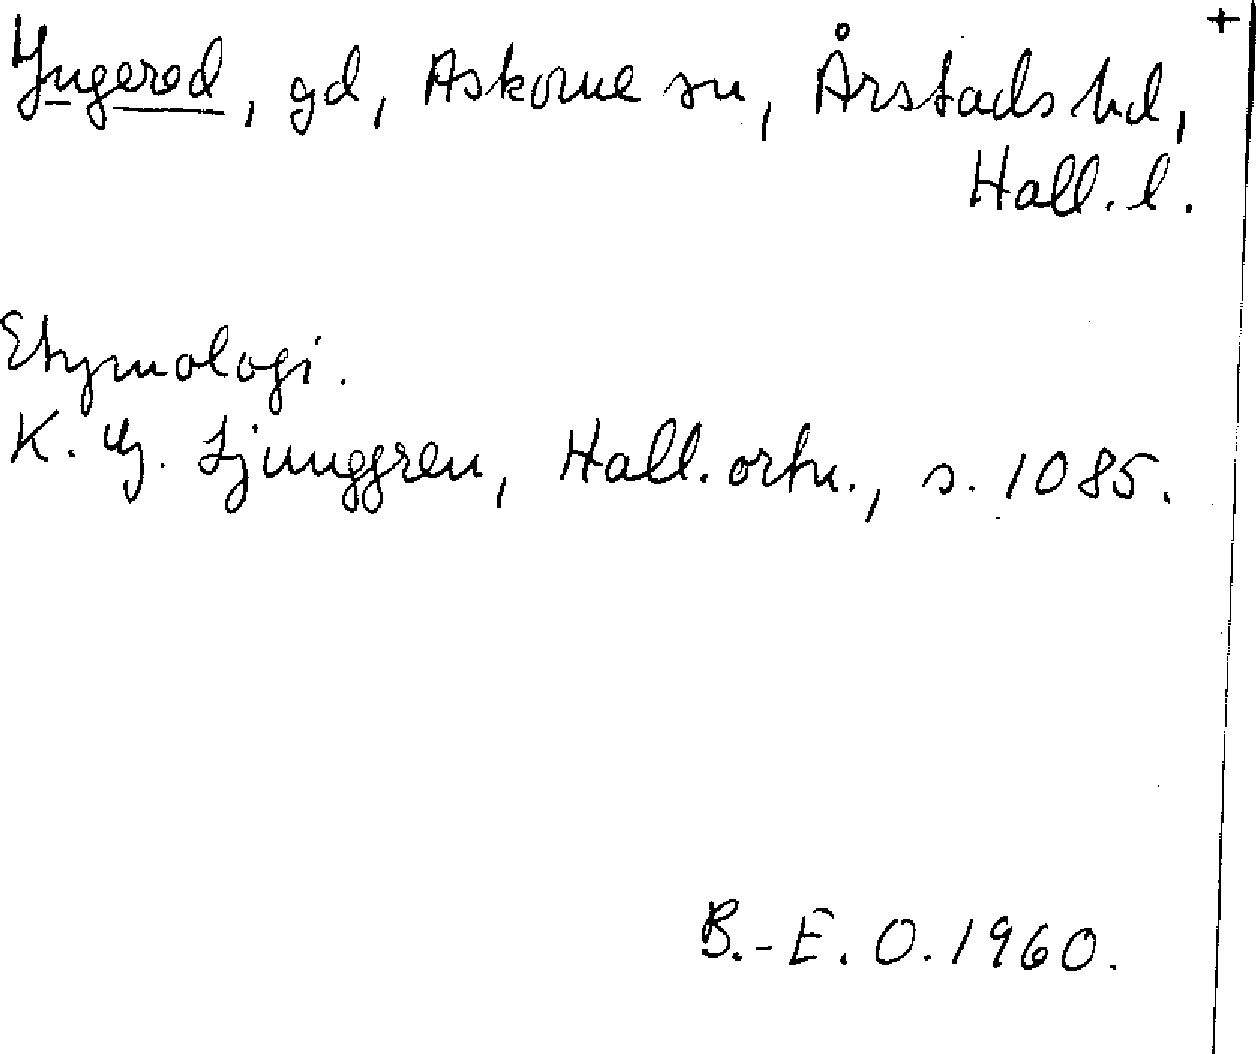 +
Yngered, gd, Askome sn, Årstads hd,
Hall. l.
Etymologi.
K. G. Ljunggren, Hall. ortn., s. 1085.
B.-E. O. 1960.